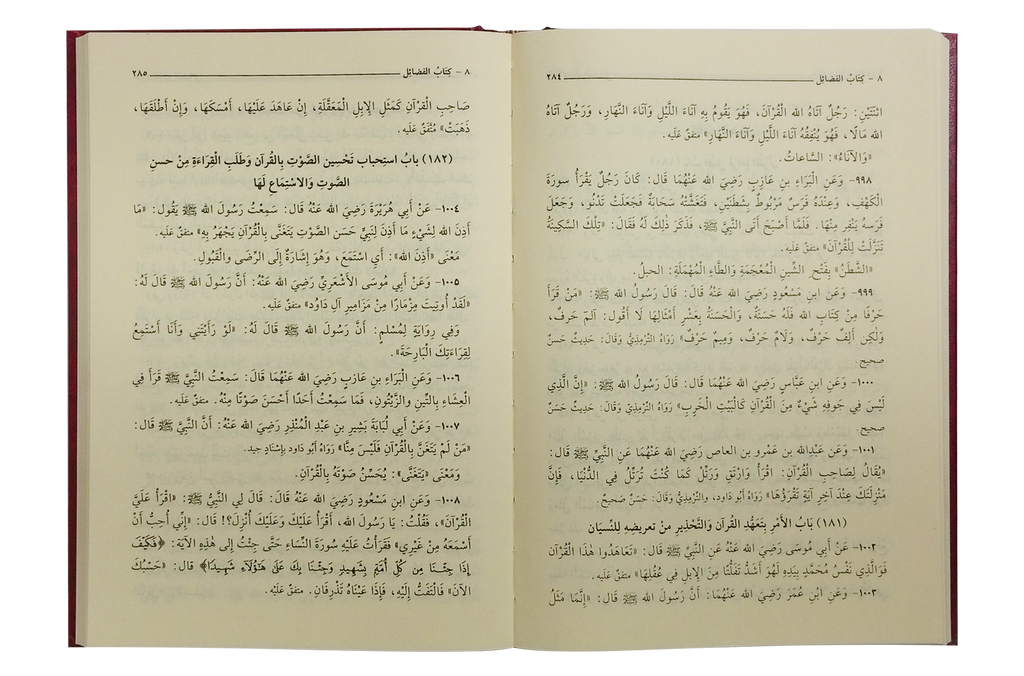 ٨ - كِتَابُ الفَضائِل ٢٨٤
اثنَتَيْنِ: رَجُلٌ آتَاهُ الله الْقُرْآنَ، فَهُوَ يَقُومُ بِهِ آنَاءَ اللَّيْلِ وَآنَاءَ النَّهَارِ، وَرَجُلٌ آتَاهُ
الله مَالًا، فَهُوَ يُنْفِقُهُ آنَاءَ اللَّيْلِ وَآنَاءَ النَّهَارِ» متفقٌ عَلَيه.
«وَالآنَاءُ»: السَّاعاتُ.
٩٩٨- وَعَنِ الْبَرَاءِ بنِ عَازِبٍ رَضِيَ الله عَنْهُمَا قَالَ: كَانَ رَجُلٌ يَقْرَأُ سورَةَ
الْكَهْفِ، وَعِنْدَهُ فَرَسٌ مَرْبُوطٌ بِشَطَنَيْنِ، فَتَغَشَّتْهُ سَحَابَةٌ فَجَعَلَتْ تَدْنُو، وَجَعَلَ
فَرَسُه يَنْفِر مِنْهَا. فَلَمَّا أَصْبَحَ أَتَى النَّبِيَّ ﷺ، فَذَكَرَ ذٰلِكَ لَهُ فَقَالَ: «تِلْكَ السَّكِينَةُ
تَنَزَّلَتْ لِلْقُرْآنِ» متفقٌ عَلَيه.
«الشَّطَنُ» بِفَتْحِ الشِّينِ الْمُعْجَمَةِ وَالطَّاءِ الْمُهْمَلَةِ: الحبلُ.
٩٩٩- وَعَنِ ابنِ مَسْعُودٍ رَضِيَ الله عَنْهُ قَالَ: قَالَ رَسُولُ الله ﷺ: «مَنْ قَرَأَ
حَرْفًا مِنْ كِتَابِ الله فَلَهُ حَسَنَةٌ، وَالْحَسَنَةُ بِعَشْرِ أَمْثَالِهَا لَا أَقول: آلمٓ حَرفٌ،
وَلٰكِن أَلِفٌ حَرْفٌ، وَلَامٌ حَرْفٌ، وَمِيمٌ حَرْفٌ» رَوَاهُ التِّرْمِذِيُّ وَقَالَ: حَدِيثٌ حَسَنٌ
صحيح.
١٠٠٠- وَعَنِ ابنِ عَبَّاسٍ رَضِيَ الله عَنْهُمَا قَالَ: قَالَ رَسُولُ الله ﷺ: «إِنَّ الَّذِي
لَيْسَ فِي جَوفِهِ شَيْءٌ مِنَ الْقُرْآنِ كَالْبَيْتِ الْخَرِبِ» رَوَاهُ التِّرْمِذِيُّ وَقَالَ: حَدِيثٌ حَسَنٌ
صحيح.
١٠٠١- وَعَن عَبدِالله بن عَمْرو بن العاص رَضِيَ الله عَنْهُمَا عَنِ النَّبِيِّ ﷺ قَالَ:
«يُقَالُ لِصَاحِبِ الْقُرْآنِ: اقْرَأْ وَارْتَقِ وَرَتِّلْ كَمَا كُنْتَ تُرَتِّلُ فِي الدُّنْيَا، فَإِنَّ
مَنْزِلَتَكَ عِنْدَ آخِرِ آيَةٍ تَقْرَؤُهَا» رَوَاهُ أبُو دَاود، والتّرْمِذيُّ وَقَالَ: حَسَنٌ صَحيحٌ.
(١٨١) بَابُ الأَمْرِ بِتَعَهُّدِ القُرآنِ وَالتَّحْذِيرِ مِنْ تعريضِهِ لِلنِّسيَان
١٠٠٢- عَنْ أَبِي مُوسَى رَضِيَ الله عَنْهُ عَنِ النَّبِيِّ ﷺ قَالَ: «تَعَاهَدُوا هَذَا الْقُرْآنَ
فَوَالَّذِي نَفْسُ مُحَمَّدٍ بِيَدِهِ لَهُوَ أَشَدُّ تَفَلُّتًا مِنَ الإِبلِ فِي عُقُلِهَا» متفقٌ عَلَيه.
١٠٠٣- وَعَنِ ابْنِ عُمَرَ رَضِيَ الله عَنْهُمَا: أَنَّ رَسُولَ الله ﷺ قَالَ: «إِنَّمَا مَثَلُ
٨ - كِتَابُ الفَضائِل ٢٨٥
صَاحِبِ الْقُرْآنِ كَمَثَلِ الإِبِلِ الْمُعَقَّلَةِ، إِنْ عَاهَدَ عَلَيْهَا، أَمْسَكَهَا، وَإِنْ أَطْلَقَهَا،
ذَهَبَتْ» مُتَّفَقٌ عَلَيه.
(١٨٢) بابُ استِحبابِ تَحْسِينِ الصَّوْتِ بِالقُرآن وَطَلَبِ القِرَاءَةِ مِنْ حسنِ
الصَّوتِ وَالاسْتِمَاعِ لَهَا
١٠٠٤- عَنْ أَبِي هُرَيْرَةَ رَضِيَ الله عَنْهُ قَالَ: سَمِعْتُ رَسُولَ الله ﷺ يَقُولُ: «مَا
أَذِنَ الله لِشَيْءٍ مَا أَذِنَ لِنَبِيٍّ حَسَنِ الصَّوْتِ يَتَغَنَّى بِالْقُرْآنِ يَجْهَرُ بِهِ» متفقٌ عَلَيه.
مَعْنَى «أَذِنَ الله»: أَيِ اسْتَمَعَ، وَهُوَ إِشَارَةٌ إِلَى الرِّضَى وَالْقَبُولِ.
١٠٠٥- وَعَنْ أَبِي مُوسَى الأَشْعَرِيِّ رَضِيَ الله عَنْهُ: أَنَّ رَسُولَ الله ﷺ قَالَ لَهُ:
«لَقَدْ أُوتِيتَ مِزْمَارًا مِنْ مَزَامِيرِ آلِ دَاوُد» متفقٌ عَلَيه.
وَفِي رِوَايَةٍ لِمُسْلمٍ: أَنَّ رَسُولَ الله ﷺ قَالَ لَهُ: «لَوْ رَأَيْتَنِي وَأَنَا أَسْتَمِعُ
لِقِرَاءَتِكَ الْبَارِحَةَ».
١٠٠٦- وَعَنِ الْبَرَاءِ بنِ عَازِبٍ رَضِيَ الله عَنْهُمَا قَالَ: سَمِعْتُ النَّبِيَّ ﷺ قَرَأَ فِي
الْعِشَاءِ بِالتِّينِ والزَّيْتُونِ، فَمَا سَمِعْتُ أَحَدًا أَحْسَنَ صَوْتًا مِنْهُ. متفقٌ عَلَيه.
١٠٠٧- وَعَنْ أَبِي لُبَابَةَ بَشِيرِ بنِ عَبْدِ الْمُنْذِرِ رَضِيَ الله عَنْهُ: أَنَّ النَّبِيَّ ﷺ قَالَ:
«مَنْ لَمْ يَتَغَنَّ بِالْقُرْآنِ فَلَيْسَ مِنَّا» رَوَاهُ أبُو دَاود بإسْنَادٍ جيد.
وَمَعْنَى «يَتَغَنَّى»: يُحَسِّنُ صَوْتَهُ بِالْقُرْآنِ.
١٠٠٨- وَعَنِ ابنِ مَسْعُودٍ رَضِيَ الله عَنْهُ قَالَ: قَالَ لِي النَّبِيُّ ﷺ: «اقْرَأْ عَلَيَّ
الْقُرْآنَ»، فَقُلْتُ: يَا رَسُولَ الله، أَقْرَأُ عَلَيْكَ وَعَلَيْكَ أُنْزِلَ؟! قَالَ: «إِنِّي أُحِبُّ أَنْ
أَسْمَعَهُ مِنْ غَيْرِي» فَقَرَأْتُ عَلَيْهِ سُورَةَ النِّسَاءِ حَتَّى جِئْتُ إِلَى هُذِهِ الآيَة: ﴿فَكَيْفَ
إِذَا جِئْنَا مِن كُلِّ أُمَّةٍ بِشَهِيدٍ وَجِئْنَا بِكَ عَلَىٰ هَٰٓؤُلَآءِ شَهِيدًا﴾ قال: «حَسْبُكَ
الآنَ» فَالْتَفَتُّ إِلَيْهِ، فَإِذَا عَيْنَاهُ تَذْرِفَانِ. متفقٌ عَلَيْه.